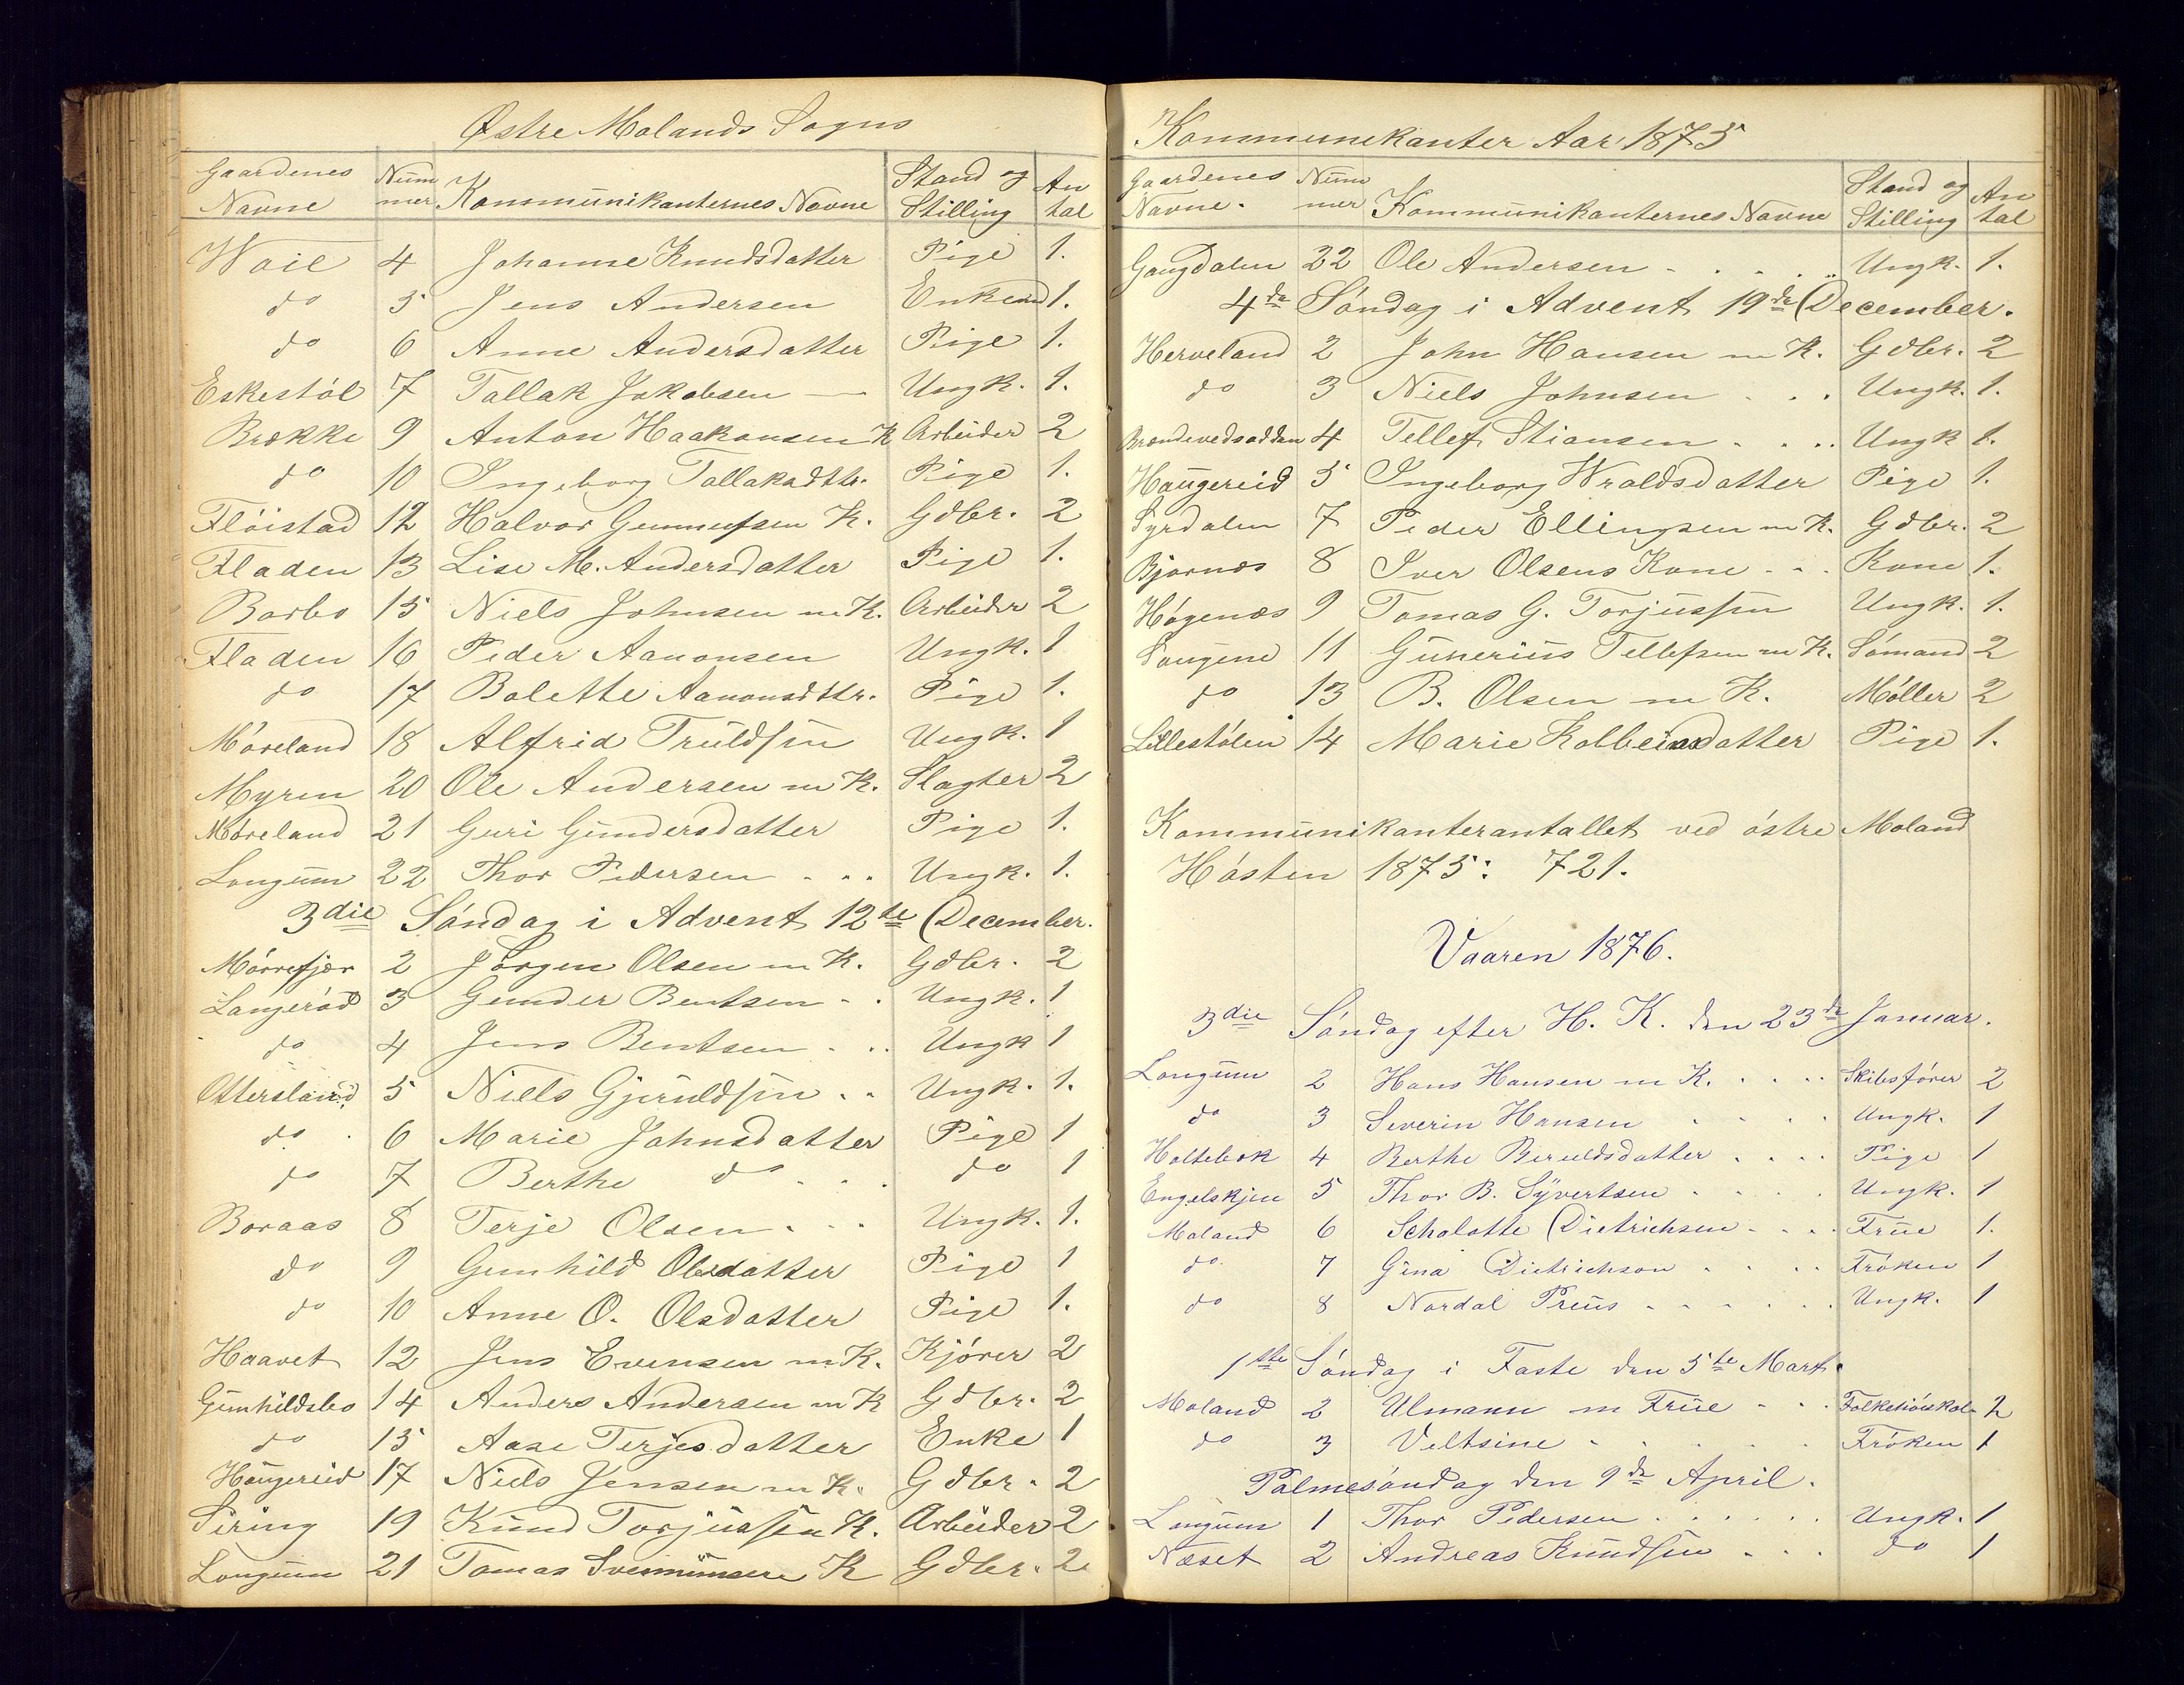 Østre Molands Sogns
Gaardenes Navne Nummer Kommunikanternes Navne Stand og Stilling Antal
Woie 4 Johanne Knudsdatter Pige 1.
do 5 Jens Andersen Enkemd 1.
do 6 Anne Andersdatter Pige 1.
Eskestöl 7 Tallak Jakobsen — Ungk. 1.
Brække 9 Anton Haakonsen K Arbeider 2
do 10 Ingeborg Tallaksdttr. Pige 1.
Flöistad 12 Halvor Gunnufsen K. Gdbr. 2
Fladen 13 Lise M. Andersdatter Pige 1.
Barbo 15 Niels Johnsen m K. Arbeider 2
Fladen 16 Peder Aanonsen Ungk. 1
do 17 Bolette Aanonsdttr. Pige 1.
Möreland 18 Alfrid Truldsen Ungk. 1
Myren 20 Ole Andersen m K. Slagter 2
Möreland 21 Guri Gundersdatter Pige 1.
Longum 22 Thor Pedersen . . . Ungk. 1.
3die Söndag i Advent 12te December.
Mörefjær 2 Jörgen Olsen m K. Gdbr. 2
Langeröd 3 Gunder Bentsen . . Ungk. 1
do 4 Jens Bentsen . . . Ungk 1
Ottersland 5 Niels Gjeruldsen . . Ungk. 1.
do 6 Marie Johnsdatter Pige 1
do 7 Berthe do . . . do 1
Boraas 8 Terje Olsen . . . Ungk. 1.
do 9 Gunhild Olsdatter Pige 1
do 10 Anne O. Olsdatter Pige 1.
Haavet 12 Jens Evensen m K. Kjörer 2
Gunhildsbo 14 Anders Andersen m K Gdbr. 2
do 15 Aase Terjesdatter Enke 1
Haugereid 17 Niels Jensen m K. Gdbr. 2
Siring 19 Knud Torjussen K. Arbeider 2
Longum 21 Tomas K Gdbr. 2
Kommunekanter Aar 1875
Gaardenes Navne. Nummer Kommunikanternes Navne Stand og Stilling Antal
Gangdalen 22 Ole Andersen . . . . Ungk. 1.
4de Söndag i Advent 19de December.
Herveland 2 John Hansen m K. Gdbr. 2
do 3 Niels Johnsen . . . Ungk. 1.
Brændevedsodden 4 Tellef Stiansen . . . . Ungk 1.
Haugereid 5 Ingeborg Wroldsdatter Pige 1.
Syrdalen 7 Peder Ellingsen m K. Gdbr. 2
Bjornæs 8 Iver Olsens Kone . . . Kone 1.
Högenæs 9 Tomas G. Torjussen Ungk. 1.
Songene 11 Gunerius Tellefsen m K. Sömand 2
do 13 B. Olsen m K. Möller 2
Lillestölen 14 Marie Kolbeinsdatter Pige 1.
Kommunikanterantallet ved östre Moland
Hösten 1875: 721.
Vaaren 1876.
3die Söndag efter H. K. den 23de Januar.
Longum 2 Hans Hansen m K. . . . . Skibsförer 2
do 3 Severin Hansen . . . . Ungk. 1
Holtebok 4 Berthe Beruldsdatter . . . . Pige 1
Engelskjen 5 Thor B. Syvertsen . . . . Ungk. 1
Moland 6 Scholotte Dietrichsen . . . . Frue 1.
do. 7 Gina Dietrichson . . . . Fröken 1
do 8 Nordal Preus . . . . . . Ungk. 1
1ste Söndag i Faste den 5te Mart.
Moland 2 Ulmann m Frue . . . Folkehöiskol- 2
do 3 Veltsine . . . . . Fröken 1
Palmesöndag den 9de April.
Longum 1 Thor Pedersen . . . . . . Ungk. 1
Næset 2 Andreas Knudsen . . . do 1